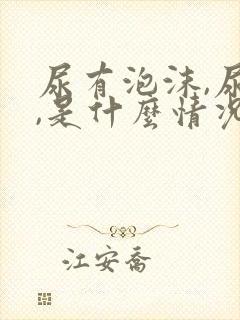 尿有泡沫,尿
,是什麼情況
江安喬